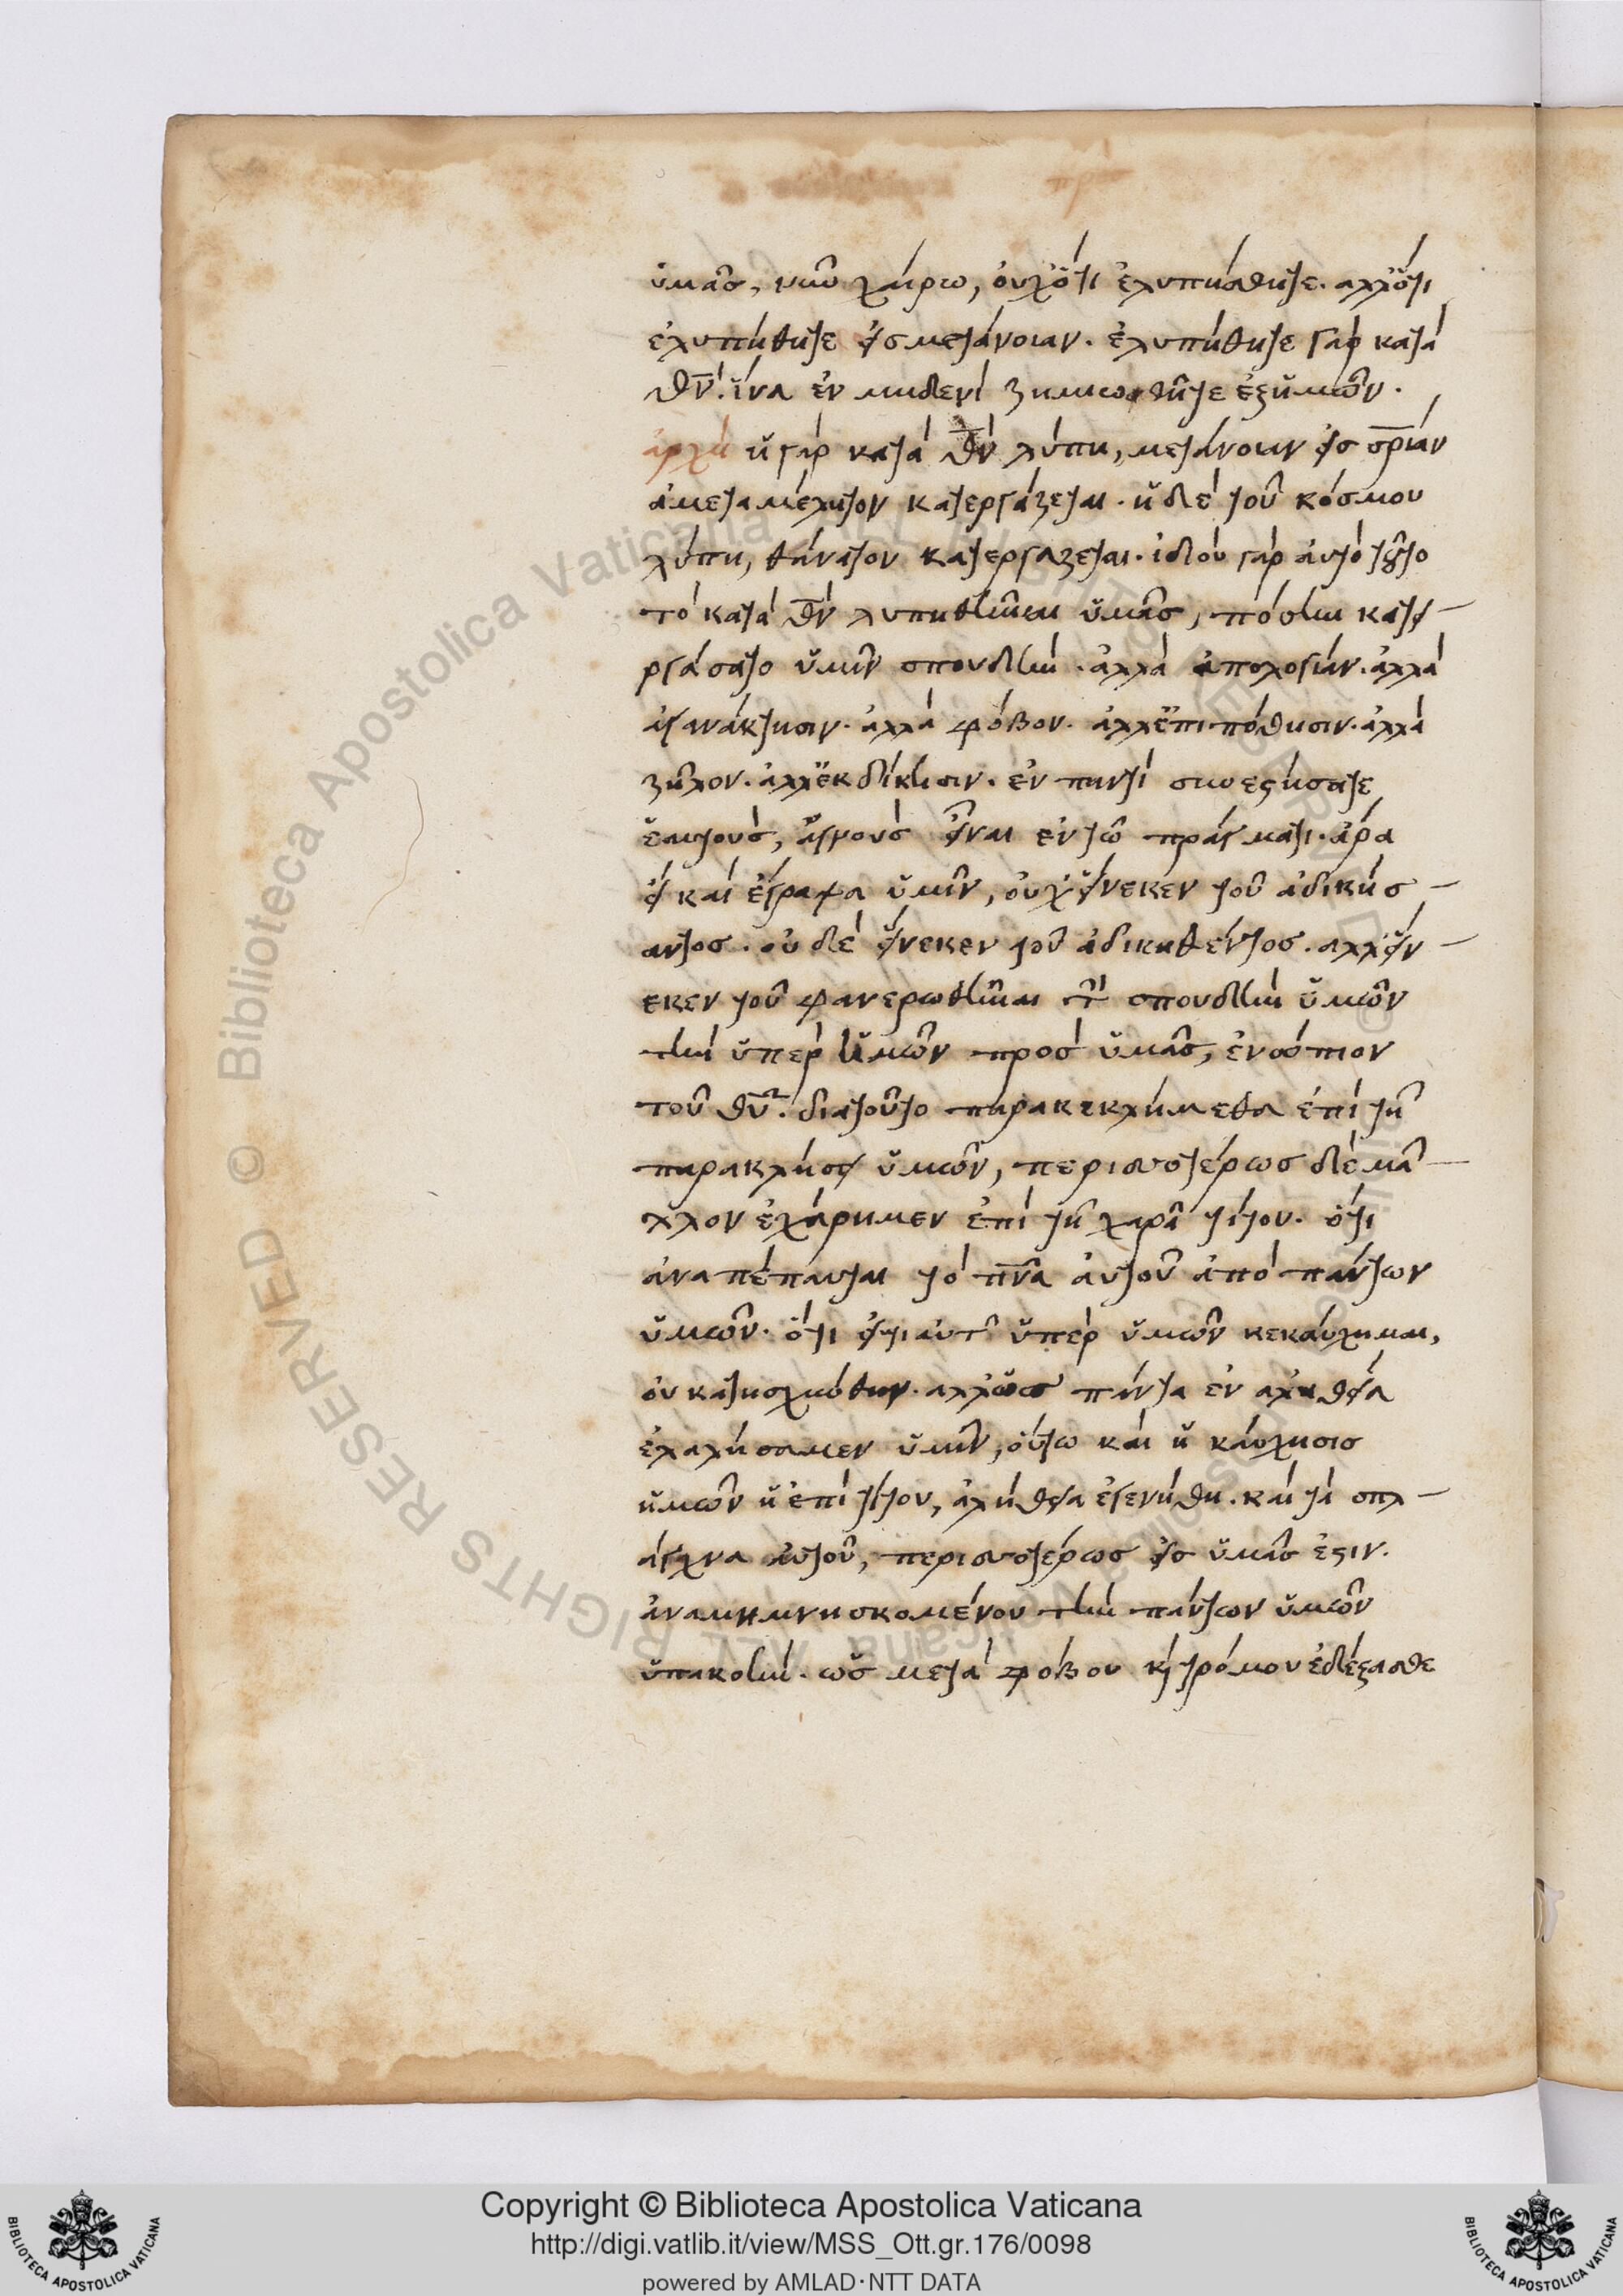 ὑμᾶσ, νῦν χαίρω, οὐχ ὅτι ἐλυπήσθητε. ἀλλ ὅτι
ἐλυπήθητε εἰσ μετάνοιαν. ἐλυπήθητε γὰρ κατὰ
θν̅. ἵνα ἐν μηδενὶ ζημιωθῆτε ἐξ ὑμῶν.
ἀρχὴ ἡ γὰρ κατὰ θν̅ λύπη, μετάνοιαν εἰσ σρ̅ίαν
ἀμεταμέλητον κατεργάζεται. ἡ δὲ τοῦ κόσμου
λύπη, θάνατον κατεργαζεται. ἰδοὺ γὰρ αὐτὸ τοῦτο
τὸ κατὰ θν̅ λυπηθῆναι ὑμᾶσ, πόσην κατει–
ργάσατο ὑμῖν σπουδὴν. ἀλλὰ ἀπολογίαν. ἀλλὰ
ἀγανάκτησιν. ἀλλὰ φόβον. ἀλλ ἐπιπόθησιν. ἀλλὰ
ζῆλον. ἀλλ ἐκδίκησιν. ἐν παντὶ συνεστήσατε
ἑαυτοὺσ, ἁγνοὺσ εἶναι ἐν τῶ πράγματι. ἄρα
εἰ καὶ ἔγραψα ὑμῖν, οὐχ εἵνεκεν τοῦ ἀδικήσ–
αντοσ. οὐδὲ εἵνεκεν τοῦ ἀδικηθέντοσ. ἀλλ εἵν–
εκεν τοῦ φανερωθῆναι τὴν σπουδὴν ὑμῶν
τὴν ὑπὲρ ἡμῶν πρὸσ ὑμᾶσ, ἐνώπιον
τοῦ θυ̅. διατοῦτο παρακεκλήμεθα ἐπὶ τῆ
παρακλήσει ὑμῶν, περισσοτέρωσ δὲ μᾶ–
λλον ἐχάρημεν ἐπὶ τῆ χαρᾶ τίτου. ὅτι
ἀναπέπαυται τὸ πν̅α αὐτοῦ ἀπὸ πάντων
ὑμῶν. ὅτι εἴτι αὐτῶ ὑπὲρ ὑμῶν κεκαύχημαι,
οὐ κατησχύνθην. ἀλλ ὡσ πάντα ἐν ἀληθεία
ἐλαλήσαμεν ὑμῖν, οὕτω καὶ ἡ καύχησισ
ἡμῶν ἡ ἐπὶ τίτου, ἀλήθεια ἐγενήθη. καὶ τὰ σπλ–
άγχνα αὐτοῦ, περισσοτέρωσ εἰσ ὑμᾶσ ἐστιν.
ἀναμιμνησκομένου τὴν πάντων ὑμῶν
ὑπακοὴν. ὡσ μετὰ φόβου κὶ τρόμου ἐδέξασθε
Copyright © Biblioteca Apostolica Vaticana
http://digi.vatlib.it/view/MSS_Ott.gr.176/0098
powered by AMLAD·NTT DATA